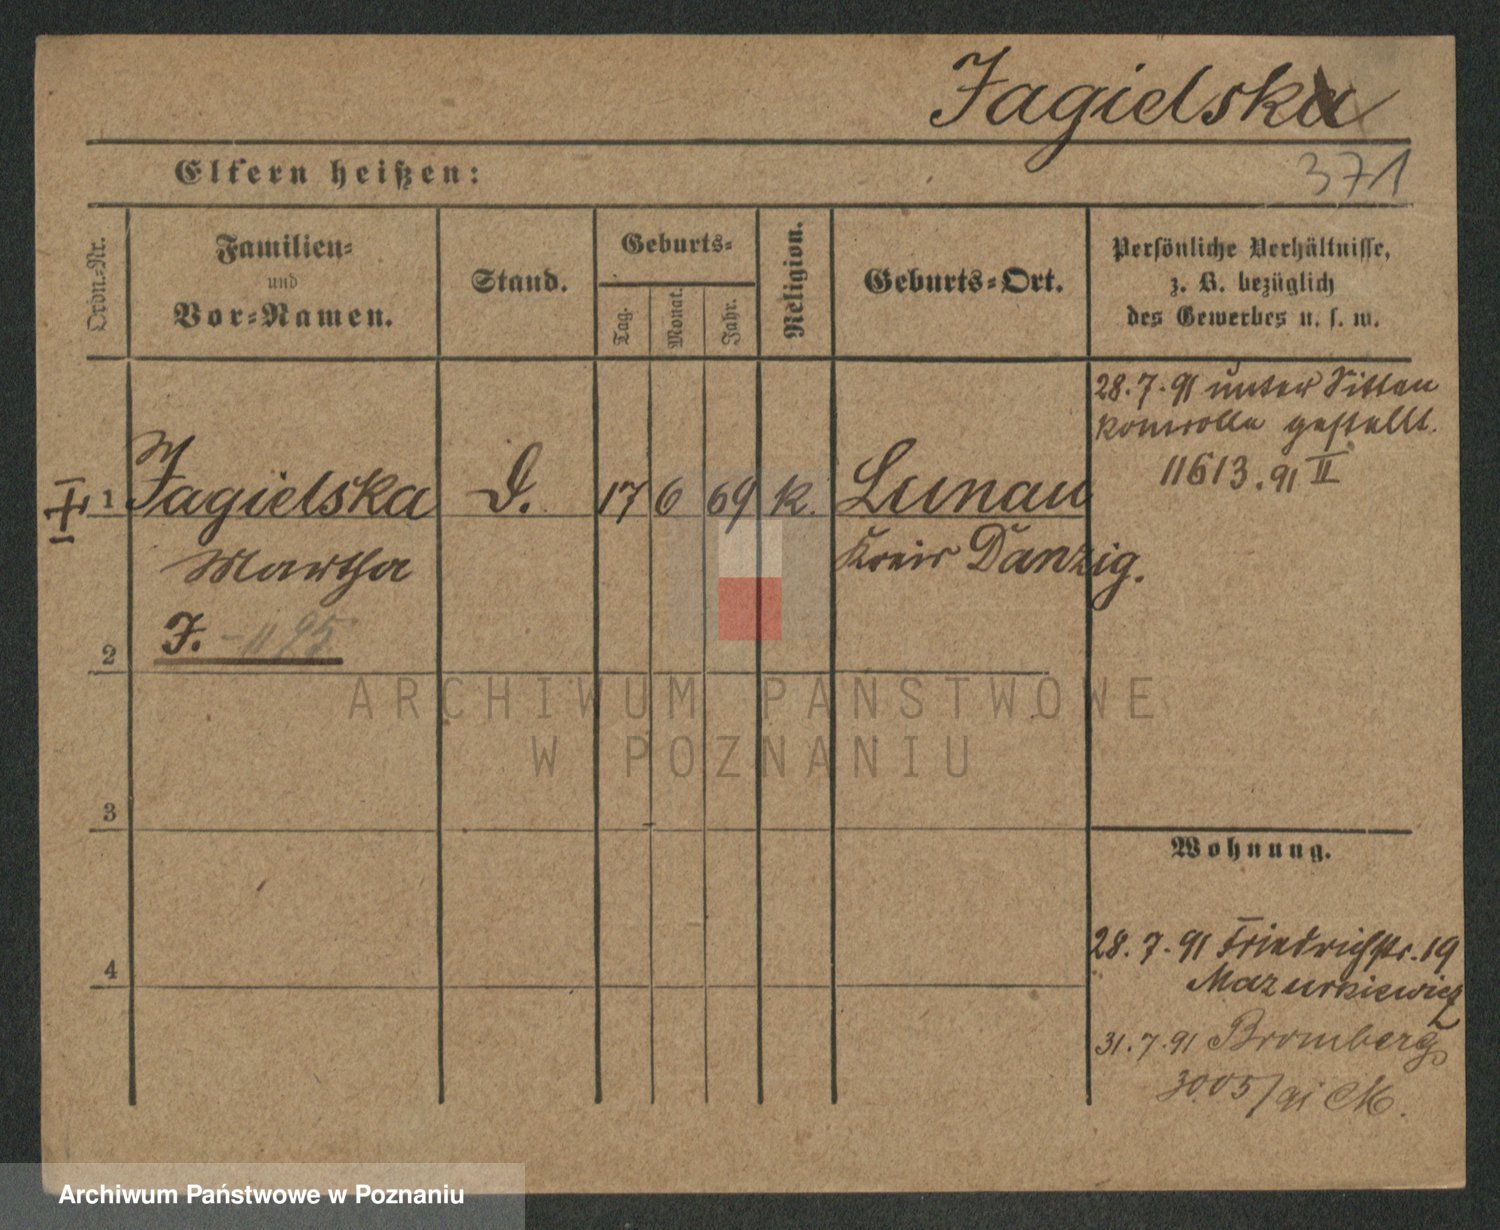 Jagielska
371
Eltern heißen:
Ordn.-Nr.
Familien-
und
Vor-Namen.
Stand.
Geburts-
Tag.
Monat.
Jahr.
Religion.
Geburts-Ort.
Persönliche Verhältnisse,
z. B. bezüglich
des Gewerbes u. s. w.
28.7.91 unter Sitten
kontrolle gestellt.
11613.91 II
1 Jagielska D. 17 6 69 k. Lunau
Martha Kreis Danzig.
J.
2
ARCHIWUM PAŃSTWOWE
W POZNANIU
3
Wohnung.
28.7.91 Friedrichstr. 19
Mazurkiewicz
4
31.7.91 Bromberg
3005/91 M.
Archiwum Państwowe w Poznaniu